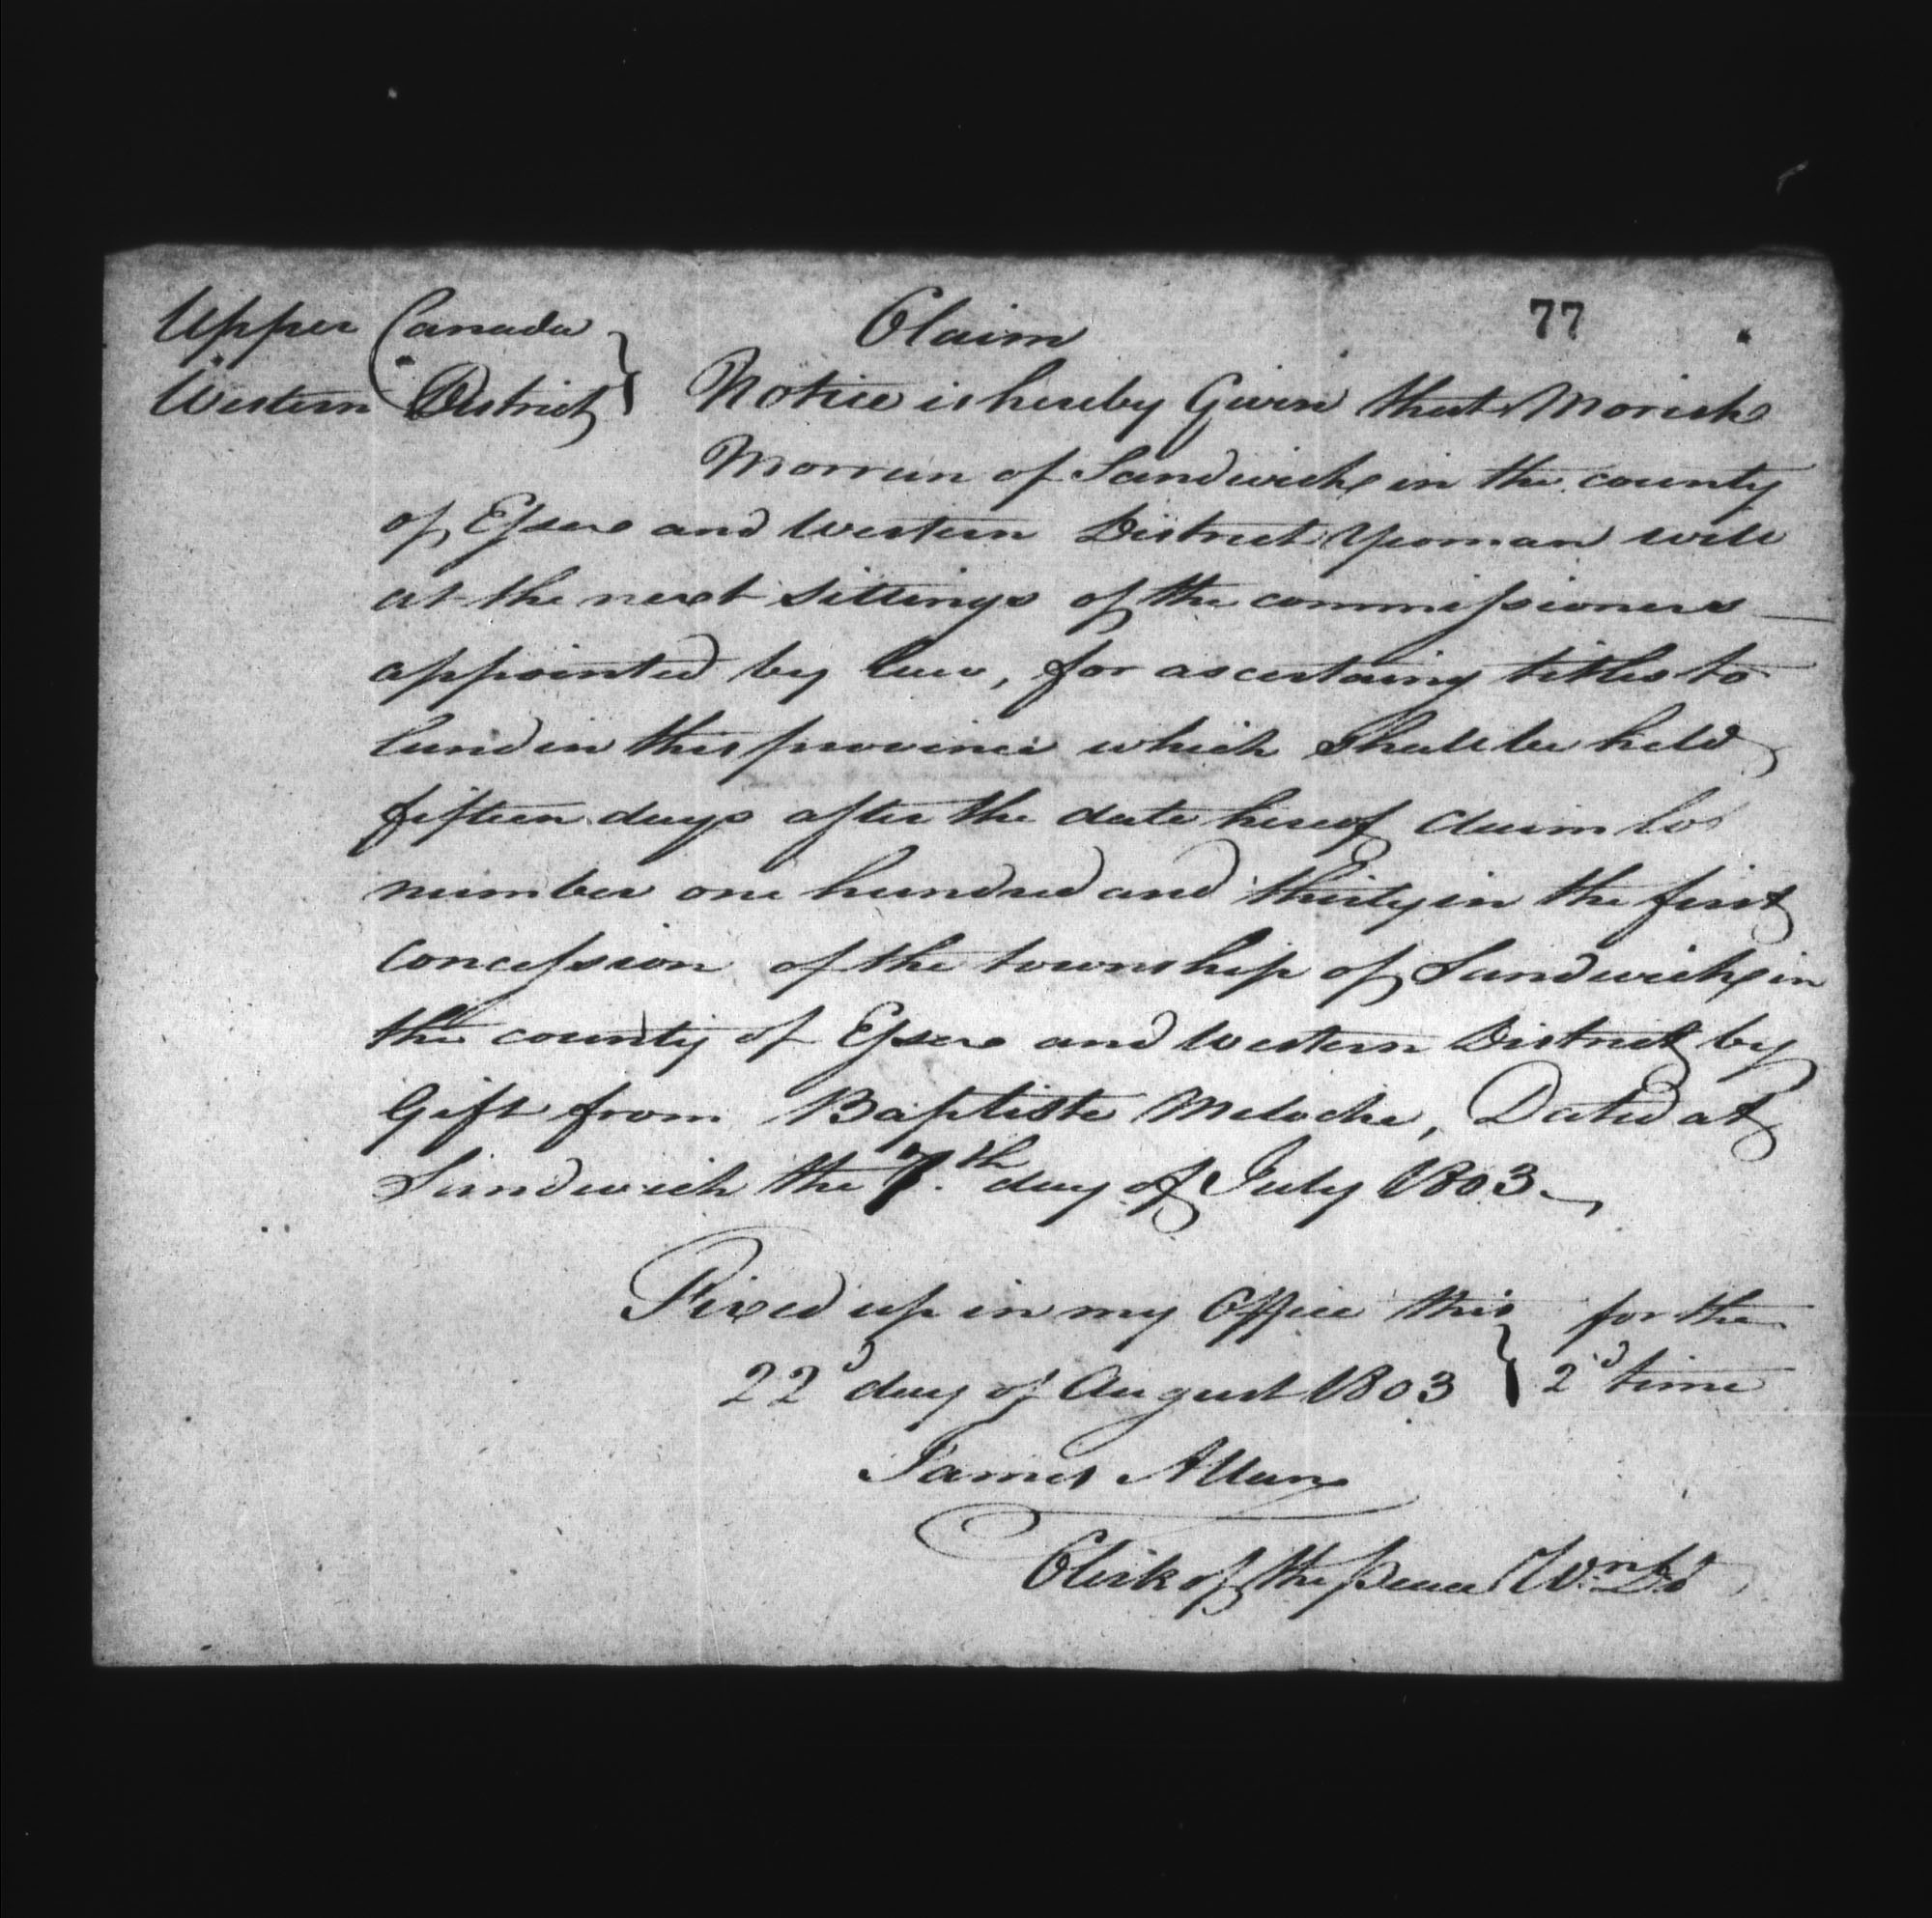 Upper Canada } Claim 77
Western District } Notice is hereby Given that Morish
Morran of Sandwich in the county
of Essex and western District yoman will
at the next sittings of the commissioners
appointed by law, for ascertaing titles to
land in this province which shall be held
fifteen days after the date hereof claim lo
number one hundred and thirty in the first
concession of the township of Sandwich in
the county of Essex and western District by
Gift from Baptiste Meloche, Dated at
Sandwich the 7.th day of July 1803
Fixed up in my Office this } for the
22d day of August 1803 } 2d time
James Allan
Clerk of the Peace Wn. Dt